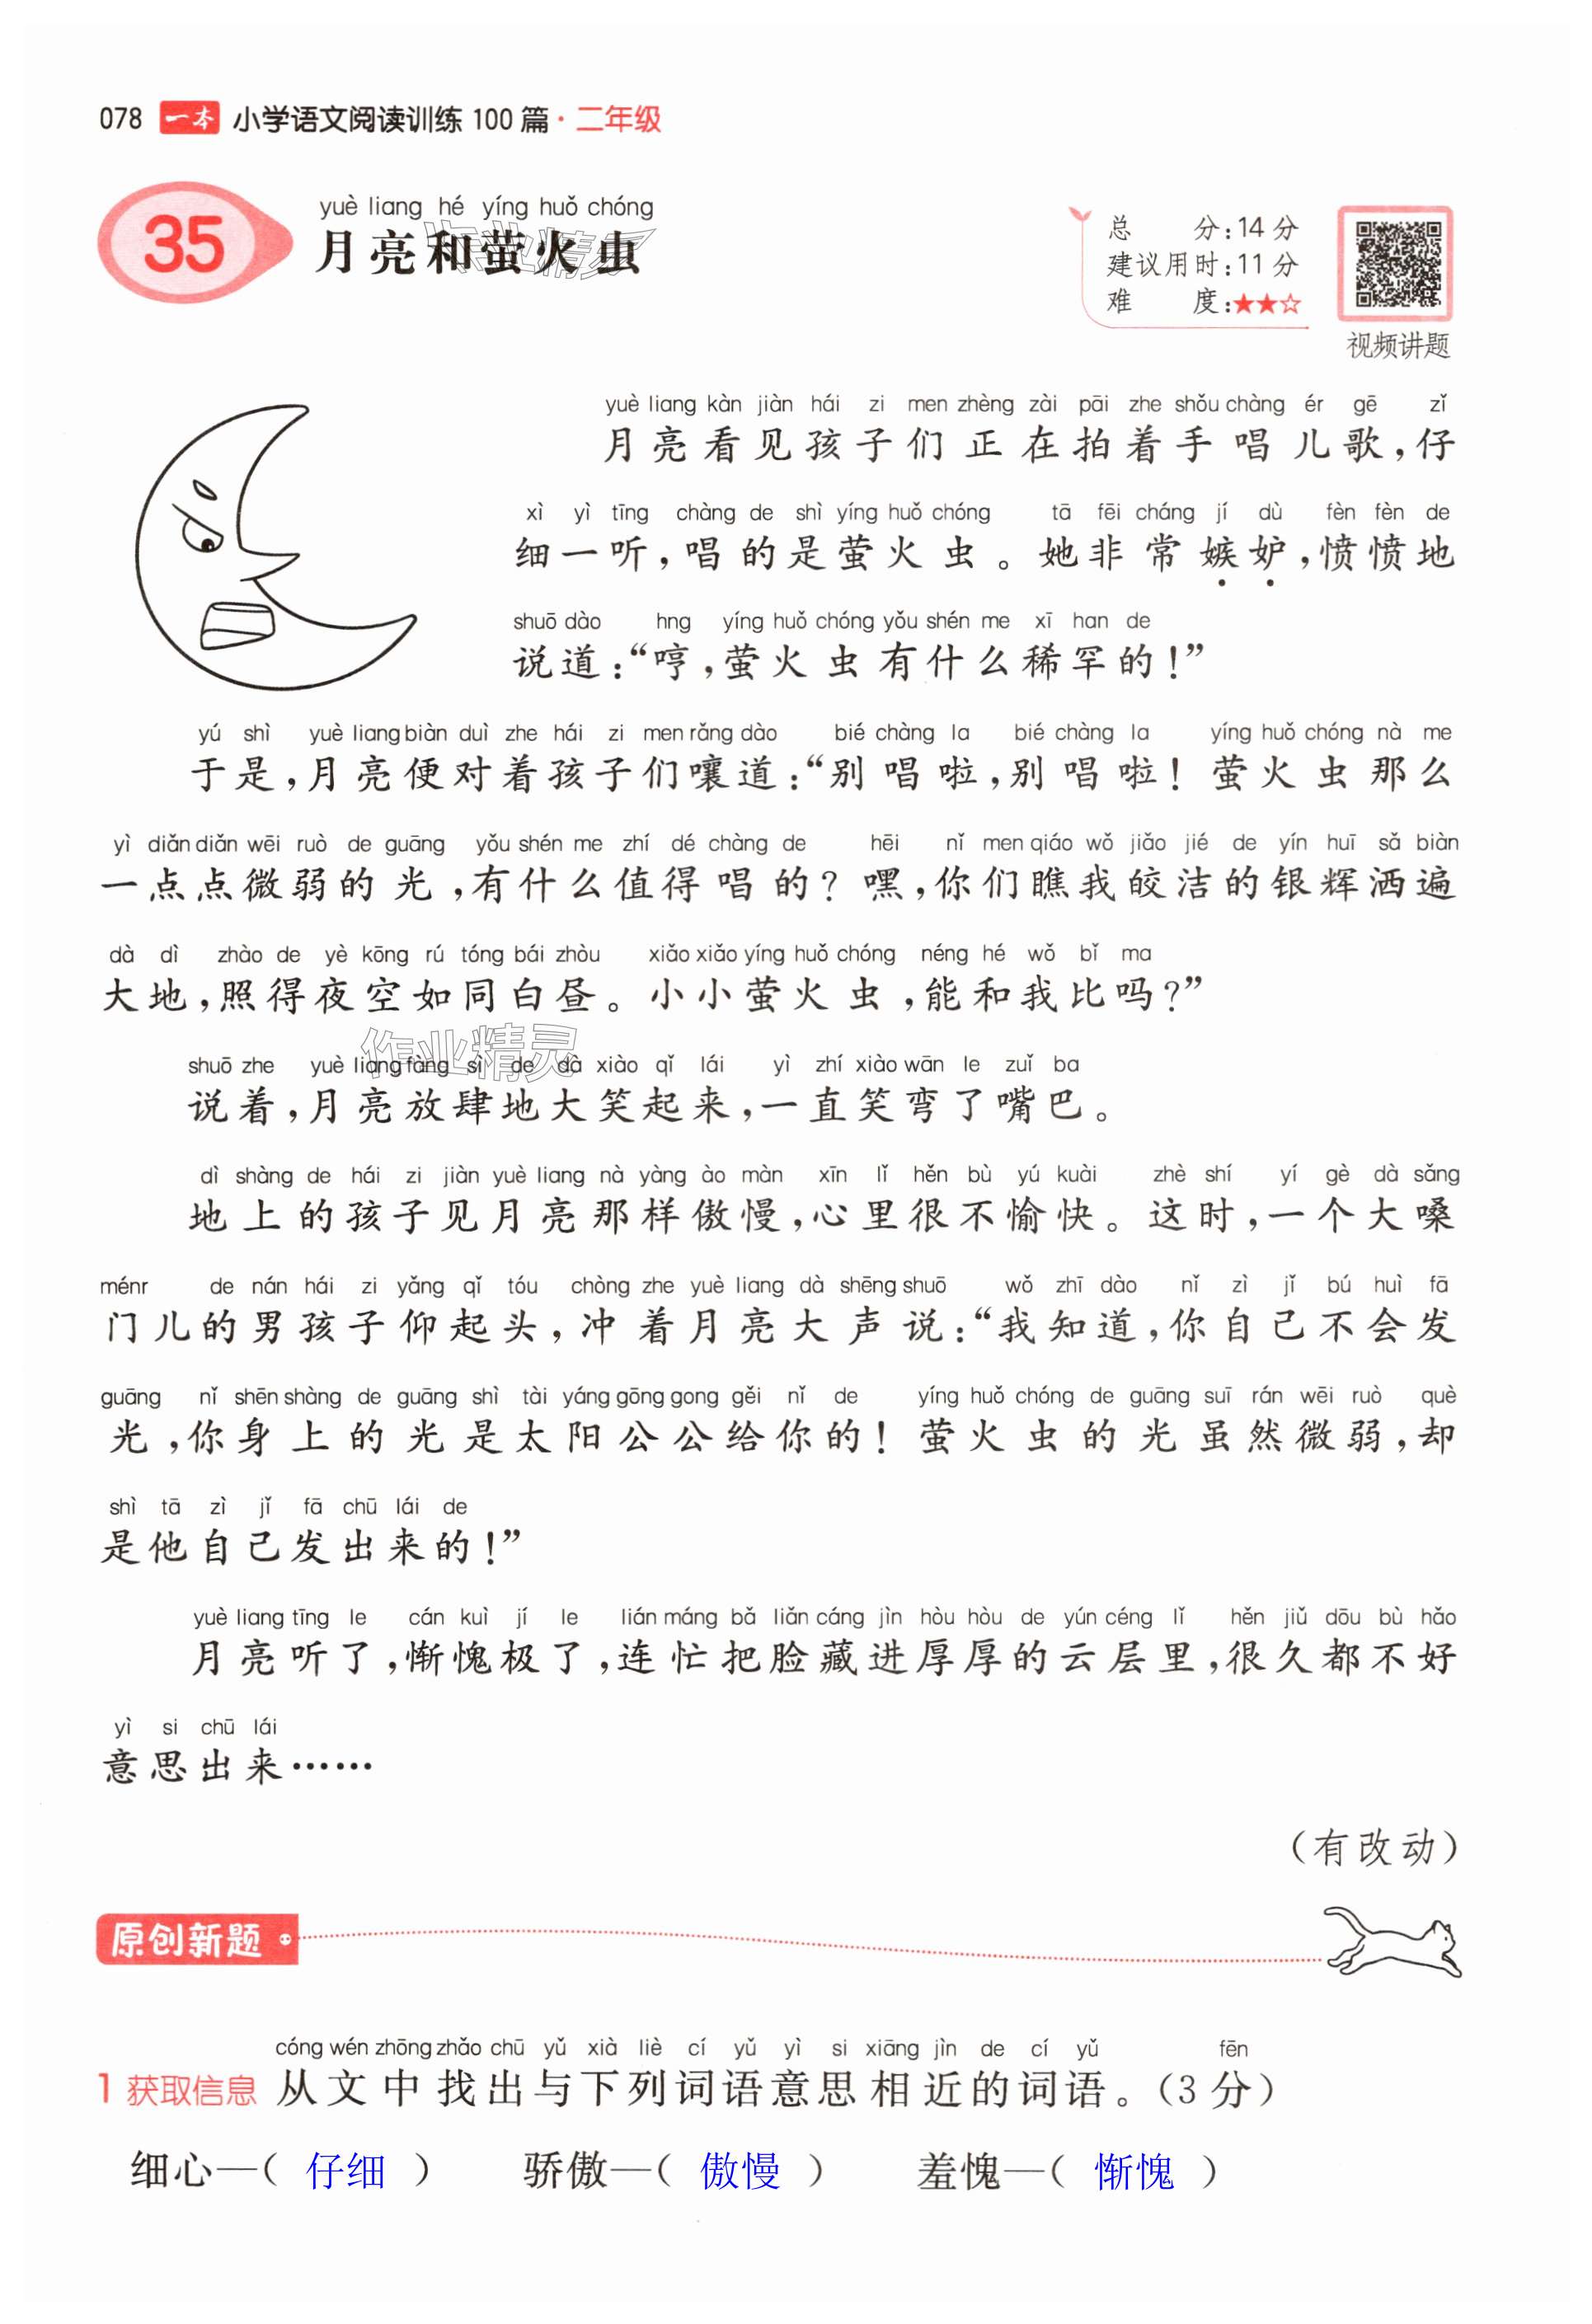 078 一本 小学语文阅读训练100篇·二年级
yuè liang hé yíng huǒ chóng
35 月亮和萤火虫
总 分:14分
建议用时:11分
难 度:★★☆
视频讲题
作业精灵
yuè liang kàn jiàn hái zi men zhèng zài pāi zhe shǒu chàng ér gē zǐ
月亮看见孩子们正在拍着手唱儿歌,仔
xì yì tīng chàng de shì yíng huǒ chóng tā fēi cháng jí dù fèn fèn de
细一听,唱的是萤火虫。她非常嫉妒,愤愤地
shuō dào hng yíng huǒ chóng yǒu shén me xī han de
说道:“哼,萤火虫有什么稀罕的!”
yú shì yuè liang biàn duì zhe hái zi men rǎng dào bié chàng la bié chàng la yíng huǒ chóng nà me
于是,月亮便对着孩子们嚷道:“别唱啦,别唱啦!萤火虫那么
yì diǎn diǎn wēi ruò de guāng yǒu shén me zhí dé chàng de hēi nǐ men qiáo wǒ jiǎo jié de yín huī sǎ biàn
一点点微弱的光,有什么值得唱的?嘿,你们瞧我皎洁的银辉洒遍
dà dì zhào de yè kōng rú tóng bái zhòu xiǎo xiǎo yíng huǒ chóng néng hé wǒ bǐ ma
大地,照得夜空如同白昼。小小萤火虫,能和我比吗?”
作业精灵
shuō zhe yuè liang fàng sì de dà xiào qǐ lái yì zhí xiào wān le zuǐ ba
说着,月亮放肆地大笑起来,一直笑弯了嘴巴。
dì shàng de hái zi jiàn yuè liang nà yàng ào màn xīn lǐ hěn bù yú kuài zhè shí yí gè dà sǎng
地上的孩子见月亮那样傲慢,心里很不愉快。这时,一个大嗓
ménr de nán hái zi yǎng qǐ tóu chòng zhe yuè liang dà shēng shuō wǒ zhī dào nǐ zì jǐ bú huì fā
门儿的男孩子仰起头,冲着月亮大声说:“我知道,你自己不会发
guāng nǐ shēn shàng de guāng shì tài yáng gōng gong gěi nǐ de yíng huǒ chóng de guāng suī rán wēi ruò què
光,你身上的光是太阳公公给你的!萤火虫的光虽然微弱,却
shì tā zì jǐ fā chū lái de
是他自己发出来的!”
yuè liang tīng le cán kuì jí le lián máng bǎ liǎn cáng jìn hòu hòu de yún céng lǐ hěn jiǔ dōu bù hǎo
月亮听了,惭愧极了,连忙把脸藏进厚厚的云层里,很久都不好
yì si chū lái
意思出来……
(有改动)
原创新题
cóng wén zhōng zhǎo chū yǔ xià liè cí yǔ yì si xiāng jìn de cí yǔ fēn
1 获取信息 从文中找出与下列词语意思相近的词语。(3分)
细心—( 仔细 ) 骄傲—( 傲慢 ) 羞愧—( 惭愧 )